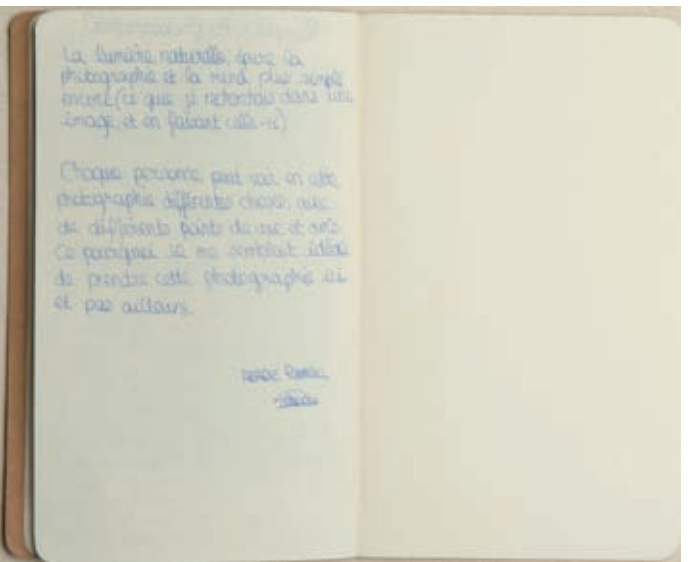 La lumière naturelle épure la
photographie et la rend plus simple
encore (ce que je recherchais dans une
image, et en faisant celle-ci)
Chaque personne peut voir en cette
photographie différentes choses, avec
de différents points de vue et avis.
Ce pourquoi il me semblait idéal
de prendre cette photographie ici
et pas ailleurs.